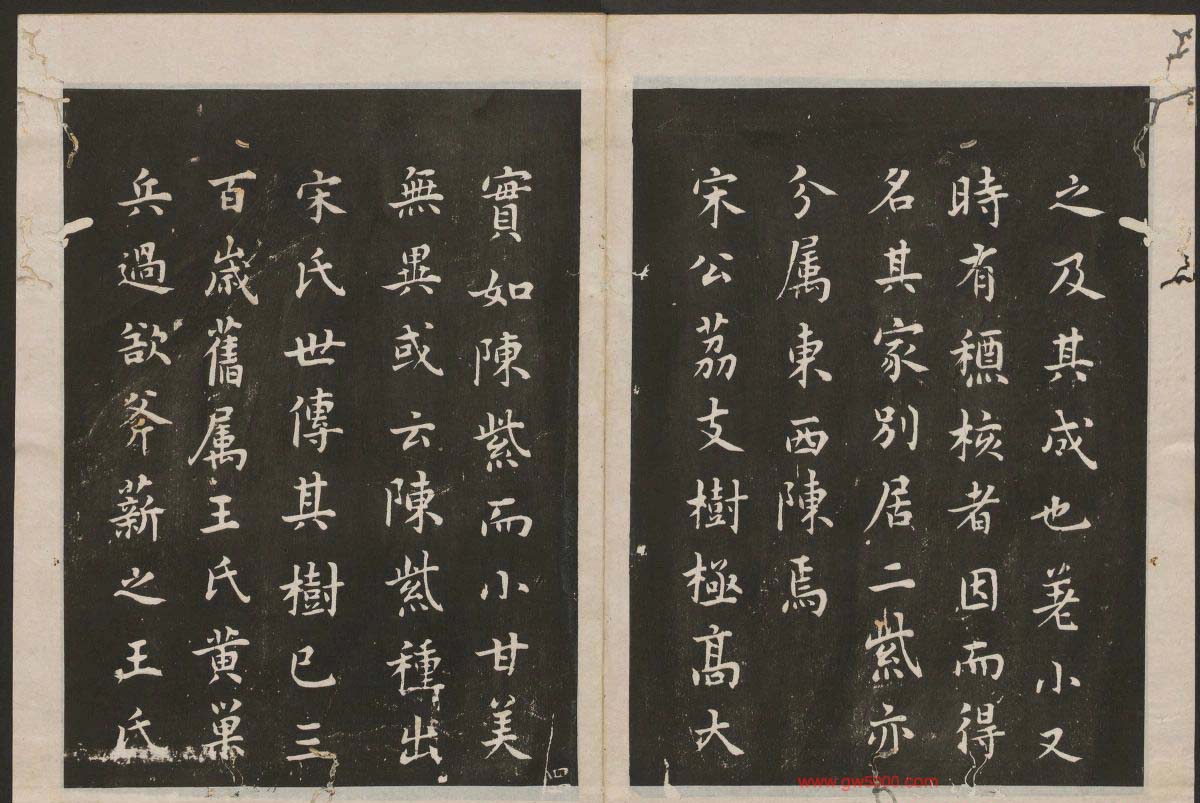 之及其成也差小又
時有穛核者因而得
名其家別居二紫亦
分属東西陳焉
宋公荔支樹極髙大
實如陳紫而小甘美
無異或云陳紫種出
宋氏世傳其樹已三
百歲舊属王氏黄巢
兵過欲斧薪之王氏
www.gw5000.com